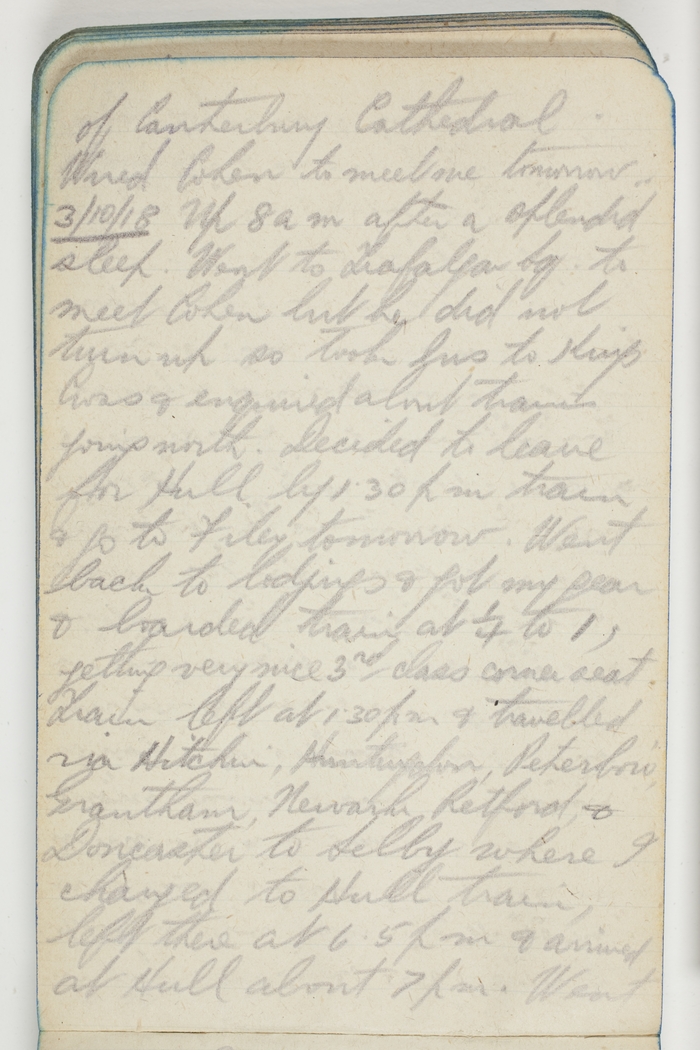 of Canterbury Cathedral.
Wired Cohen to meet me tomorrow.
3/10/18 Up 8 a m after a splendid
sleep. Went to Trafalgar Sq. to
meet Cohen but he did not
turn up so took bus to Kings
Cross & enquired about trains
going north. Decided to leave
for Hull by 1.30 p m train
& go to Filey tomorrow. Went
back to lodgings & got my gear
& boarded train at ¼ to 1,
getting very nice 3rd class corner seat
Train left at 1.30 p m & travelled
via Hitchin, Huntingdon, Peterboro,
Grantham, Newark, Retford, &
Doncaster to Selby where I
changed to Hull train,
left there at 6.5 p m & arrived
at Hull about 7 p.m. Went